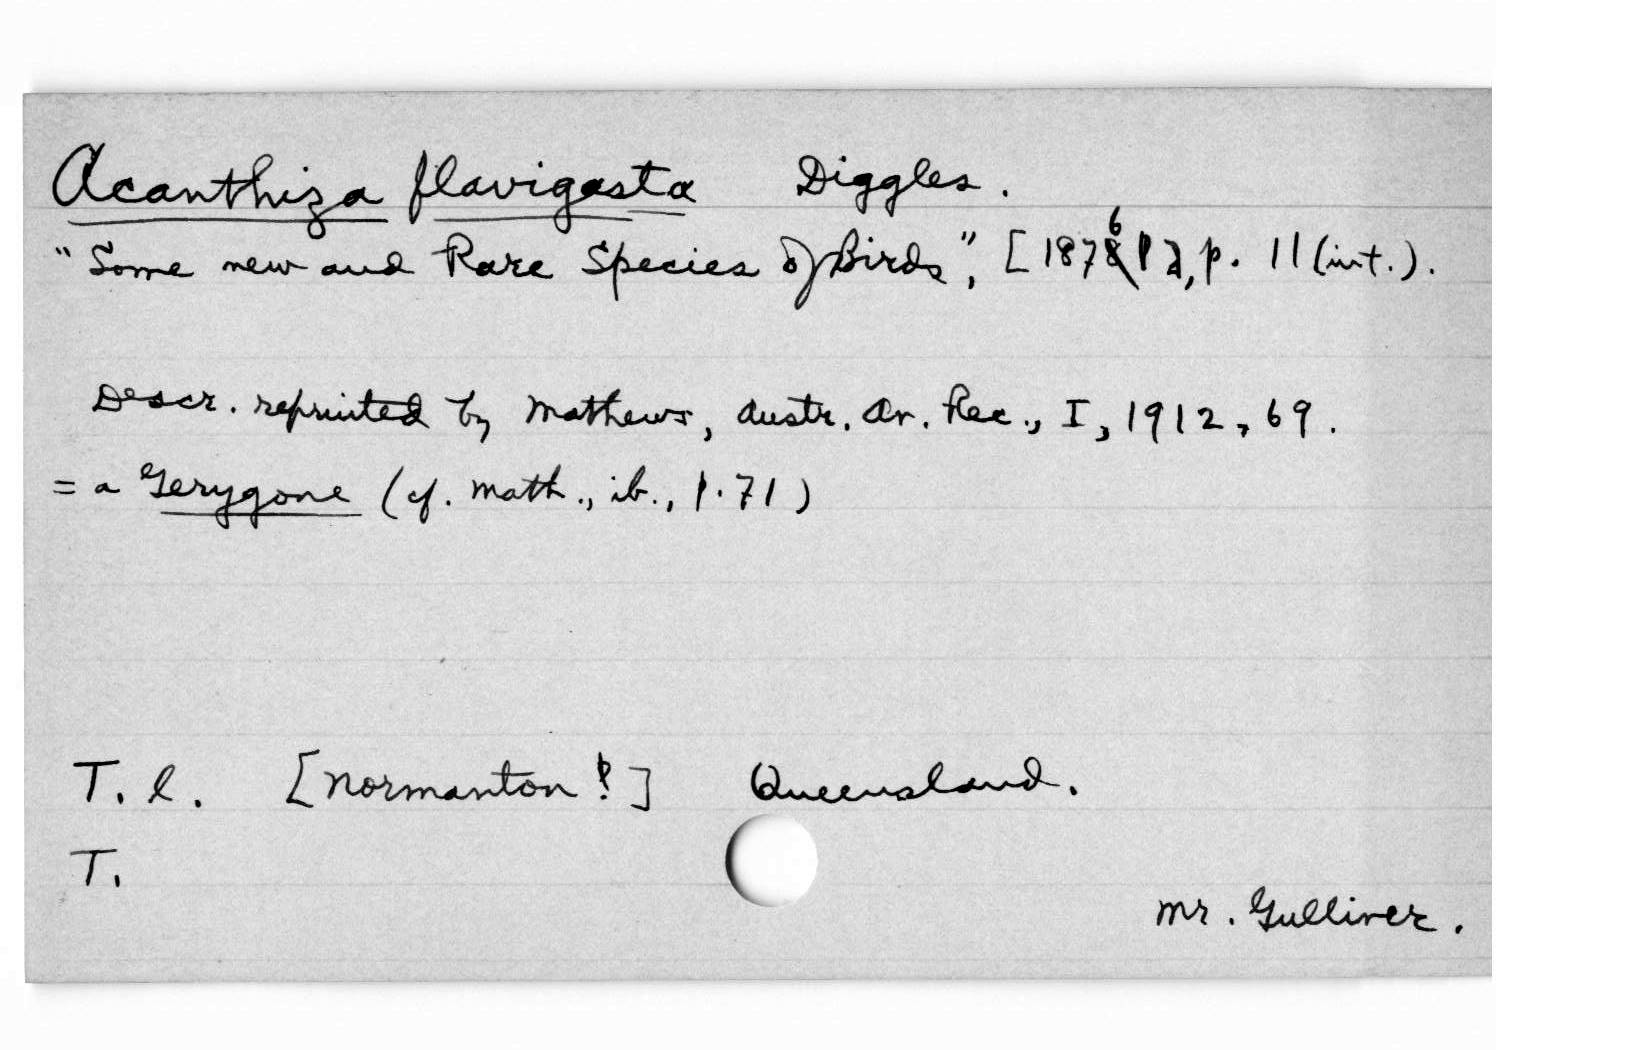 Acanthiza flavigasta Diggles.
"Some new and Rare Species of Birds", [1876?], p. 11 (int.).
Descr. reprinted by Mathews, Austr. Av. Rec., I, 1912, 69.
= a Gerygone (cf. Math., ib., p. 71)
T. l. [Normanton?] Queensland.
T.
Mr. Gulliver.